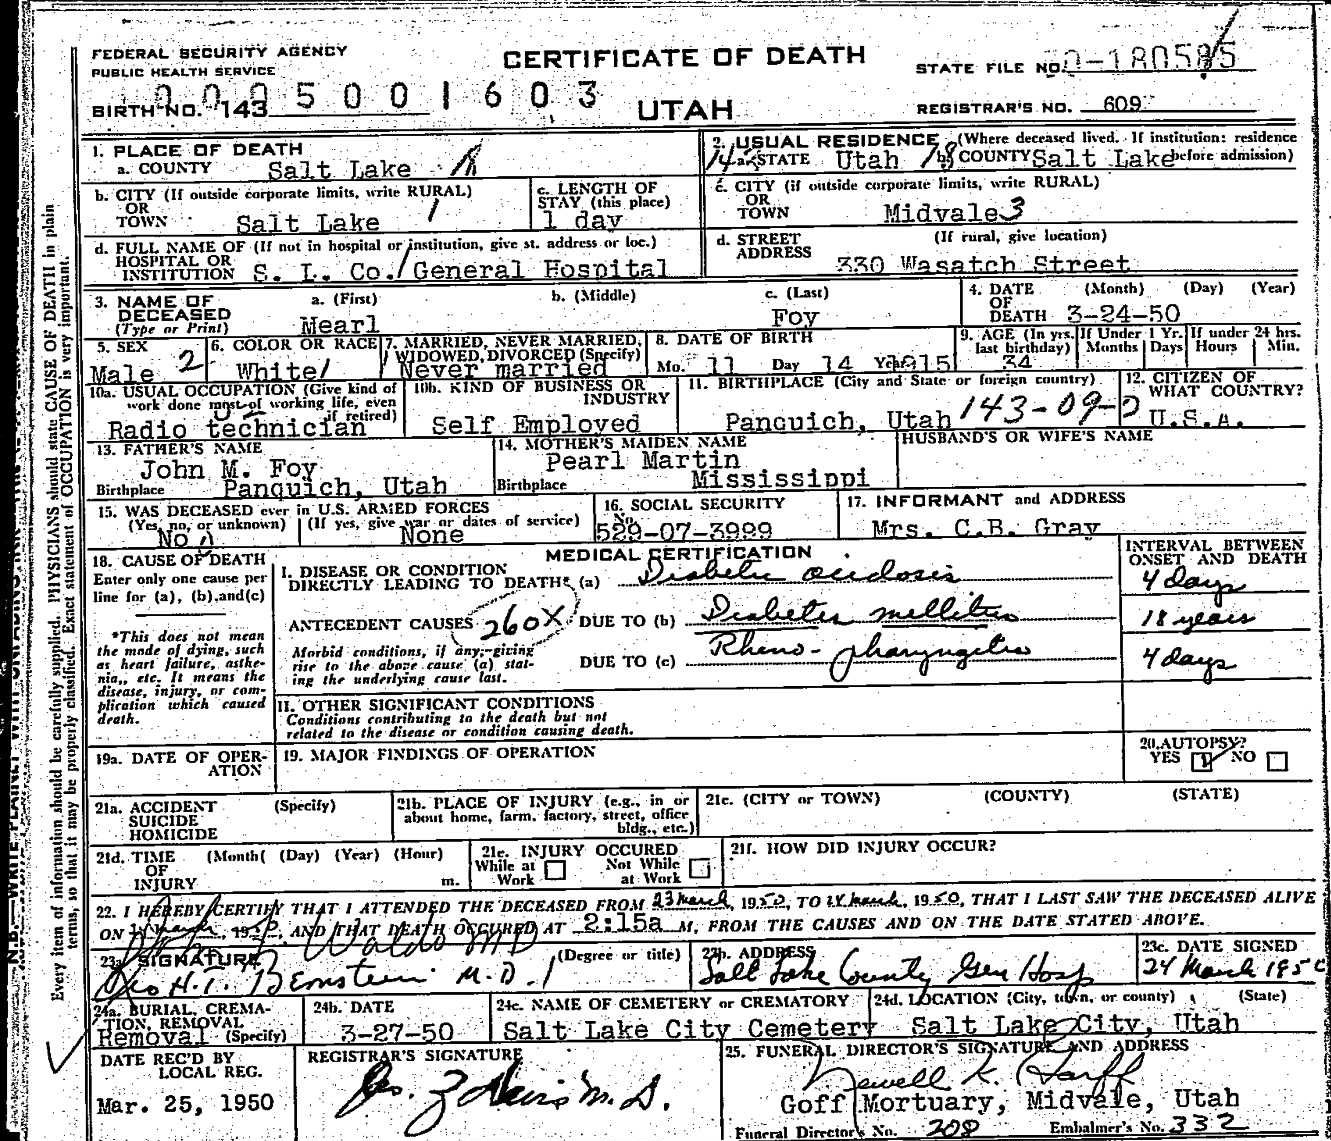 FEDERAL SECURITY AGENCY
PUBLIC HEALTH SERVICE
CERTIFICATE OF DEATH
STATE FILE NO.
BIRTH NO. 143
005001603
UTAH
REGISTRAR'S NO. 609
1. PLACE OF DEATH
a. COUNTY Salt Lake
2. USUAL RESIDENCE (Where deceased lived. If institution: residence before admission)
a. STATE Utah b. COUNTY Salt Lake
b. CITY (If outside corporate limits, write RURAL) OR TOWN Salt Lake
c. LENGTH OF STAY (this place) 1 day
c. CITY (if outside corporate limits, write RURAL) OR TOWN Midvale 3
d. FULL NAME OF (If not in hospital or institution, give st. address or loc.) HOSPITAL OR INSTITUTION S. L. Co. General Hospital
d. STREET ADDRESS (If rural, give location) 330 Wasatch Street
3. NAME OF DECEASED (Type or Print) a. (First) Mearl b. (Middle) c. (Last) Foy
4. DATE OF DEATH (Month) (Day) (Year) 3-24-50
5. SEX Male 2
6. COLOR OR RACE White
7. MARRIED, NEVER MARRIED, WIDOWED, DIVORCED (Specify) Never married
8. DATE OF BIRTH Mo. 11 Day 14 Yr. 1915
9. AGE (In yrs. last birthday) 34 If Under 1 Yr. Months Days If under 24 hrs. Hours Min.
10a. USUAL OCCUPATION (Give kind of work done most of working life, even if retired) Radio technician
10b. KIND OF BUSINESS OR INDUSTRY Self Employed
11. BIRTHPLACE (City and State or foreign country) Panquich, Utah 143-09-
12. CITIZEN OF WHAT COUNTRY? U.S.A.
13. FATHER'S NAME John M. Foy
Birthplace Panquich, Utah
14. MOTHER'S MAIDEN NAME Pearl Martin
Birthplace Mississippi
HUSBAND'S OR WIFE'S NAME
15. WAS DECEASED ever in U.S. ARMED FORCES (Yes, no, or unknown) (If yes, give war or dates of service) No None
16. SOCIAL SECURITY No. 529-07-3999
17. INFORMANT and ADDRESS Mrs. C.B. Gray
18. CAUSE OF DEATH
Enter only one cause per line for (a), (b), and (c)
*This does not mean the mode of dying, such as heart failure, asthenia, etc. It means the disease, injury, or complication which caused death.
MEDICAL CERTIFICATION
INTERVAL BETWEEN ONSET AND DEATH
I. DISEASE OR CONDITION DIRECTLY LEADING TO DEATH* (a) Diabetic acidosis 4 days
ANTECEDENT CAUSES 260X DUE TO (b) Diabetes mellitus 18 years
Morbid conditions, if any, giving rise to the above cause (a) stating the underlying cause last.
DUE TO (c) Rheno-pharyngitis 4 days
II. OTHER SIGNIFICANT CONDITIONS
Conditions contributing to the death but not related to the disease or condition causing death.
19a. DATE OF OPERATION
19. MAJOR FINDINGS OF OPERATION
20. AUTOPSY? YES NO
21a. ACCIDENT SUICIDE HOMICIDE (Specify)
21b. PLACE OF INJURY (e.g., in or about home, farm, factory, street, office bldg., etc.)
21c. (CITY or TOWN) (COUNTY) (STATE)
21d. TIME OF INJURY (Month( (Day) (Year) (Hour) m.
21e. INJURY OCCURED While at Work Not While at Work
21f. HOW DID INJURY OCCUR?
22. I HEREBY CERTIFY THAT I ATTENDED THE DECEASED FROM 23 March, 1950, TO 24 March, 1950, THAT I LAST SAW THE DECEASED ALIVE
ON 19 AND THAT DEATH OCCURED AT 2:15a M, FROM THE CAUSES AND ON THE DATE STATED ABOVE.
Waldo MD
23a. SIGNATURE H.T. Bernstein M.D. (Degree or title)
23b. ADDRESS Salt Lake County Gen Hosp
23c. DATE SIGNED 24 March 1950
24a. BURIAL, CREMATION, REMOVAL (Specify) Removal
24b. DATE 3-27-50
24c. NAME OF CEMETERY or CREMATORY Salt Lake City Cemetery
24d. LOCATION (City, town, or county) (State) Salt Lake City, Utah
DATE REC'D BY LOCAL REG. Mar. 25, 1950
REGISTRAR'S SIGNATURE M.D.
25. FUNERAL DIRECTOR'S SIGNATURE AND ADDRESS
Newell K.
Goff Mortuary, Midvale, Utah
Funeral Director's No. 208 Embalmer's No. 332
Every item of information should be carefully supplied. PHYSICIANS should state CAUSE OF DEATH in plain
terms, so that it may be properly classified. Exact statement of OCCUPATION is very important.